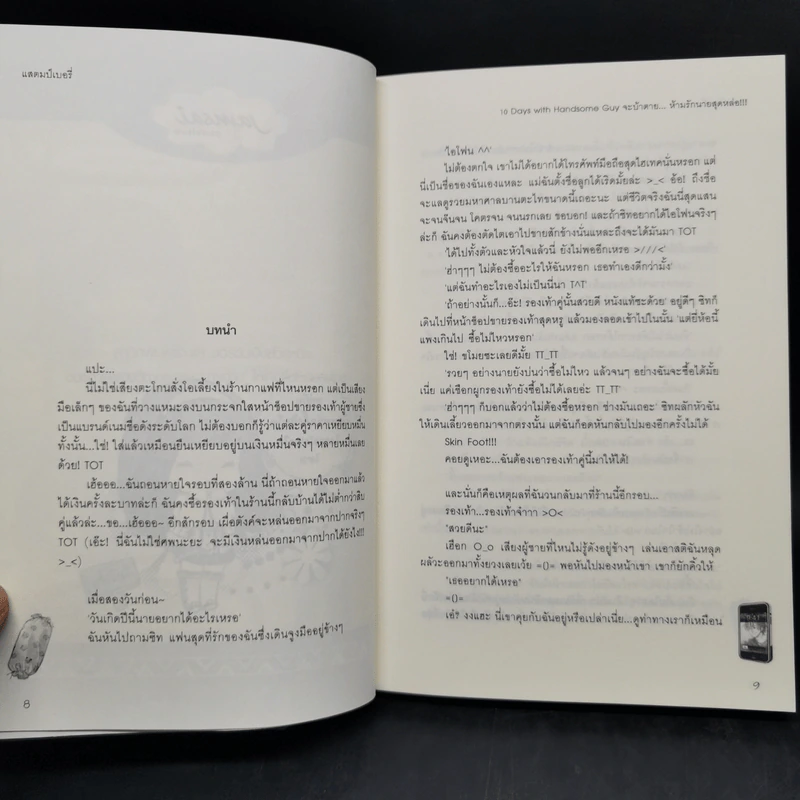 แสตมป์เบอรี่
บทนำ
แปะ...
นี่ไม่ใช่เสียงตะโกนสั่งโอเลี้ยงในร้านกาแฟที่ไหนหรอก แต่เป็นเสียง
มือเล็กๆ ของฉันที่วางแหมะลงบนกระจกใสหน้าช็อปขายรองเท้าผู้ชายซึ่ง
เป็นแบรนด์เนมชื่อดังระดับโลก ไม่ต้องบอกก็รู้ว่าแต่ละคู่ราคาเหยียบหมื่น
ทั้งนั้น...ใช่! ใส่แล้วเหมือนยืนเหยียบอยู่บนเงินหมื่นจริงๆ หลายหมื่นเลย
ด้วย! TOT
เฮ้อออ...ฉันถอนหายใจรอบที่สองล้าน นี่ถ้าถอนหายใจออกมาแล้ว
ได้เงินครั้งละบาทล่ะก็ ฉันคงซื้อรองเท้าในร้านนี้กลับบ้านได้ไม่ต่ำกว่าสิบ
คู่แล้วล่ะ...ขอ...เฮ้อออ~ อีกสักรอบ เผื่อตังค์จะหล่นออกมาจากปากจริงๆ
TOT (เอ๊ะ! นี่ฉันไม่ใช่ศพนะยะ จะมีเงินหล่นออกมาจากปากได้ยังไง!!!
>_<)
เมื่อสองวันก่อน~
'วันเกิดปีนี้นายอยากได้อะไรเหรอ'
ฉันหันไปถามซิท แฟนสุดที่รักของฉันซึ่งเดินจูงมืออยู่ข้างๆ
8
10 Days with Handsome Guy จะบ้าตาย... ห้ามรักนายสุดหล่อ!!!
'ไอโฟน ^^'
ไม่ต้องตกใจ เขาไม่ได้อยากได้โทรศัพท์มือถือสุดไฮเทคนั่นหรอก แต่
นี่เป็นชื่อของฉันเองแหละ แม่ฉันตั้งชื่อลูกได้เริดมั้ยล่ะ >_< อ้อ! ถึงชื่อ
จะแลดูรวยมหาศาลบานตะไทขนาดนี้เถอะนะ แต่ชีวิตจริงฉันนี่สุดแสน
จะจนจีนจน โคตรจน จนนรกเลย ขอบอก! และถ้าซิทอยากได้ไอโฟนจริงๆ
ล่ะก็ ฉันคงต้องตัดไตเอาไปขายสักข้างนั่นแหละถึงจะได้มันมา TOT
'ได้ไปทั้งตัวและหัวใจแล้วนี่ ยังไม่พออีกเหรอ >///<'
'ฮ่าๆๆๆ ไม่ต้องซื้ออะไรให้ฉันหรอก เธอทำเองดีกว่ามั้ง'
'แต่ฉันทำอะไรเองไม่เป็นนี่นา T^T'
'ถ้าอย่างนั้นก็...อ๊ะ! รองเท้าคู่นั้นสวยดี หนังแท้ซะด้วย' อยู่ดีๆ ซิทก็
เดินไปที่หน้าช็อปขายรองเท้าสุดหรู แล้วมองลอดเข้าไปในนั้น 'แต่ยี่ห้อนี้
แพงเกินไป ซื้อไม่ไหวหรอก'
ใช่! ขโมยซะเลยดีมั้ย TT_TT
'รวยๆ อย่างนายยังบ่นว่าซื้อไม่ไหว แล้วจนๆ อย่างฉันจะซื้อได้มั้ย
เนี่ย แค่เชือกผูกรองเท้ายังซื้อไม่ได้เลยอ่ะ TT_TT'
'ฮ่าๆๆๆ ก็บอกแล้วว่าไม่ต้องซื้อหรอก ช่างมันเถอะ' ซิทผลักหัวฉัน
ให้เดินเลี้ยวออกมาจากตรงนั้น แต่ฉันก็อดหันกลับไปมองอีกครั้งไม่ได้
Skin Foot!!!
คอยดูเหอะ...ฉันต้องเอารองเท้าคู่นี้มาให้ได้!
และนั่นก็คือเหตุผลที่ฉันวนกลับมาที่ร้านนี้อีกรอบ...
รองเท้า...รองเท้าจ๋าาา >O<
"สวยดีนะ"
เฮือก O_o เสียงผู้ชายที่ไหนไม่รู้ดังอยู่ข้างๆ เล่นเอาสติฉันหลุด
ผลัวะออกมาทั้งยวงเลยเว้ย =()= พอหันไปมองหน้าเขา เขาก็ยักคิ้วให้
"เธออยากได้เหรอ"
=()=
เอ๋? งงแฮะ นี่เขาคุยกับฉันอยู่หรือเปล่าเนี่ย...ดูท่าทางเราก็เหมือน
9